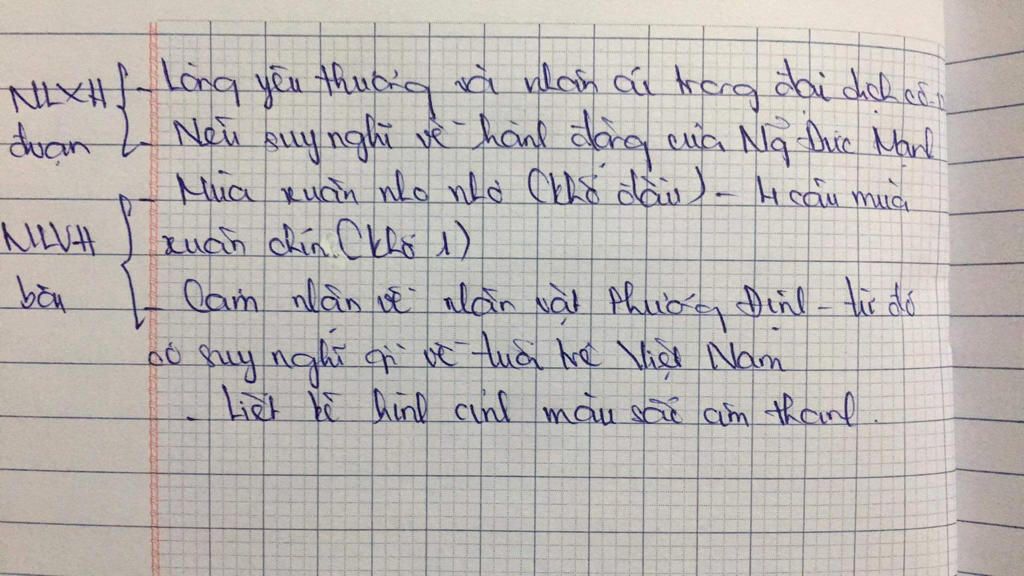 NLXH - Lòng yêu thương và nhân ái trong đại dịch cô-
đoạn - Nêu suy nghĩ về hành động của Ng Đức Mạnh
- Mùa xuân nho nhỏ (khổ đầu) - 4 câu mùa
NLVH xuân chín. (khổ 1)
bài - Cảm nhận về nhân vật Phương Định - từ đó
có suy nghĩ gì về tuổi trẻ Việt Nam
. Liệt kê hình ảnh màu sắc âm thanh.